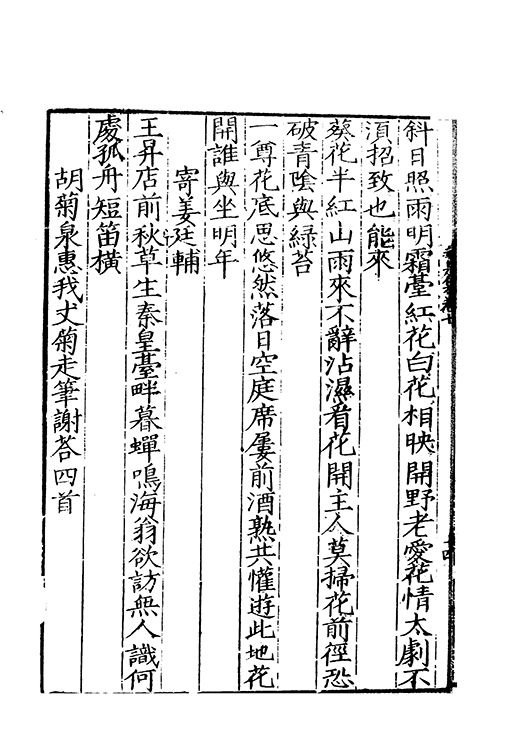 斜日照雨明霜臺紅花白花相映開野老愛花情太劇不
須招致也能來
葵花半紅山雨來不辭沾濕看花開主人莫掃花前徑恐
破青陰與緑苔
一尊花底思悠然落日空庭席屢前酒熟共懽遊此地花
開誰與坐明年
寄姜廷輔
王昇店前秋草生秦皇臺畔暮蟬鳴海翁欲訪無人識何
處孤舟短笛橫
胡菊泉惠我丈菊走筆謝荅四首